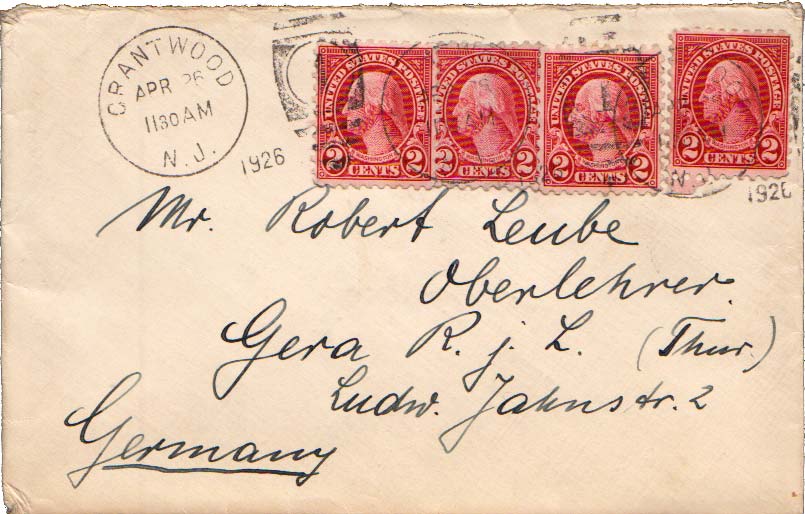 GRANTWOOD
APR 26
1130 AM
N.J.
1926
UNITED STATES POSTAGE
2 CENTS 2
UNITED STATES POSTAGE
2 CENTS 2
UNITED STATES POSTAGE
2 CENTS 2
UNITED STATES POSTAGE
2 CENTS 2
1926
Mr. Robert Leube
Oberlehrer.
Gera R. j. L. (Thür.)
Ludw. Jahnstr. 2
Germany